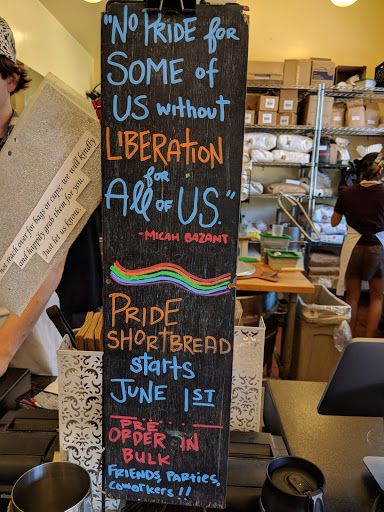 "No PRiDE for
SOME of
US without
LIBERATION
for
All of US."
-MICAH BAZANT
PRiDE
SHORTBREAD
starts
JUNE 1ST
PRE
ORDER IN
BULK
FRIENDS, PARTIES,
COWORKERS!!
not reach over for bags or cups; we will kindly
and happily grab them for you.
Just let us know.